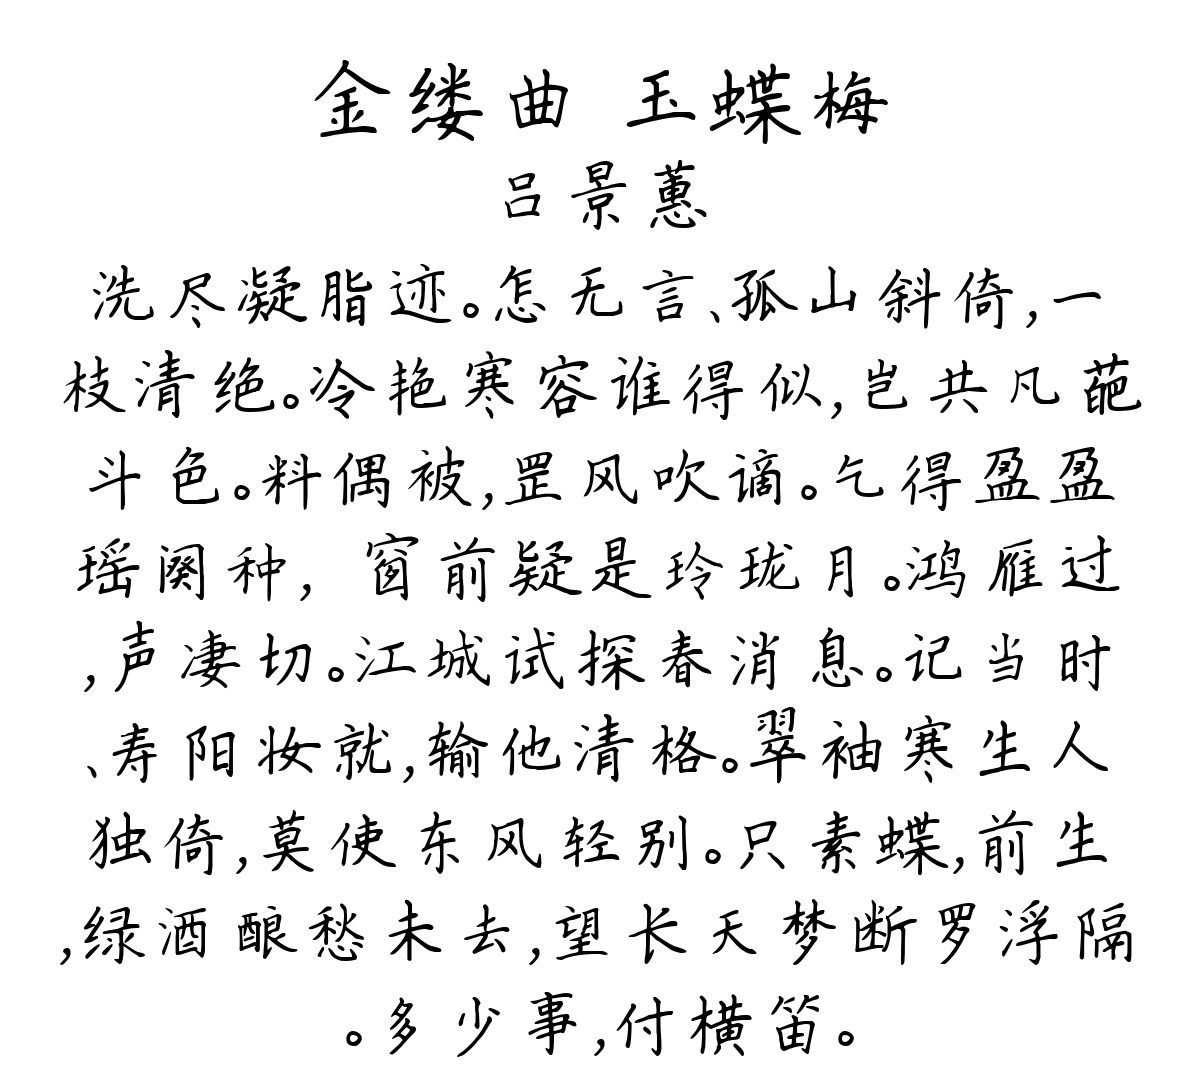 金缕曲 玉蝶梅
吕景蕙
洗尽凝脂迹。怎无言、孤山斜倚,一
枝清绝。冷艳寒容谁得似,岂共凡葩
斗色。料偶被,罡风吹谪。乞得盈盈
瑶阕种，窗前疑是玲珑月。鸿雁过
,声凄切。江城试探春消息。记当时
、寿阳妆就,输他清格。翠袖寒生人
独倚,莫使东风轻别。只素蝶,前生
,绿酒酿愁未去,望长天梦断罗浮隔
。多少事,付横笛。